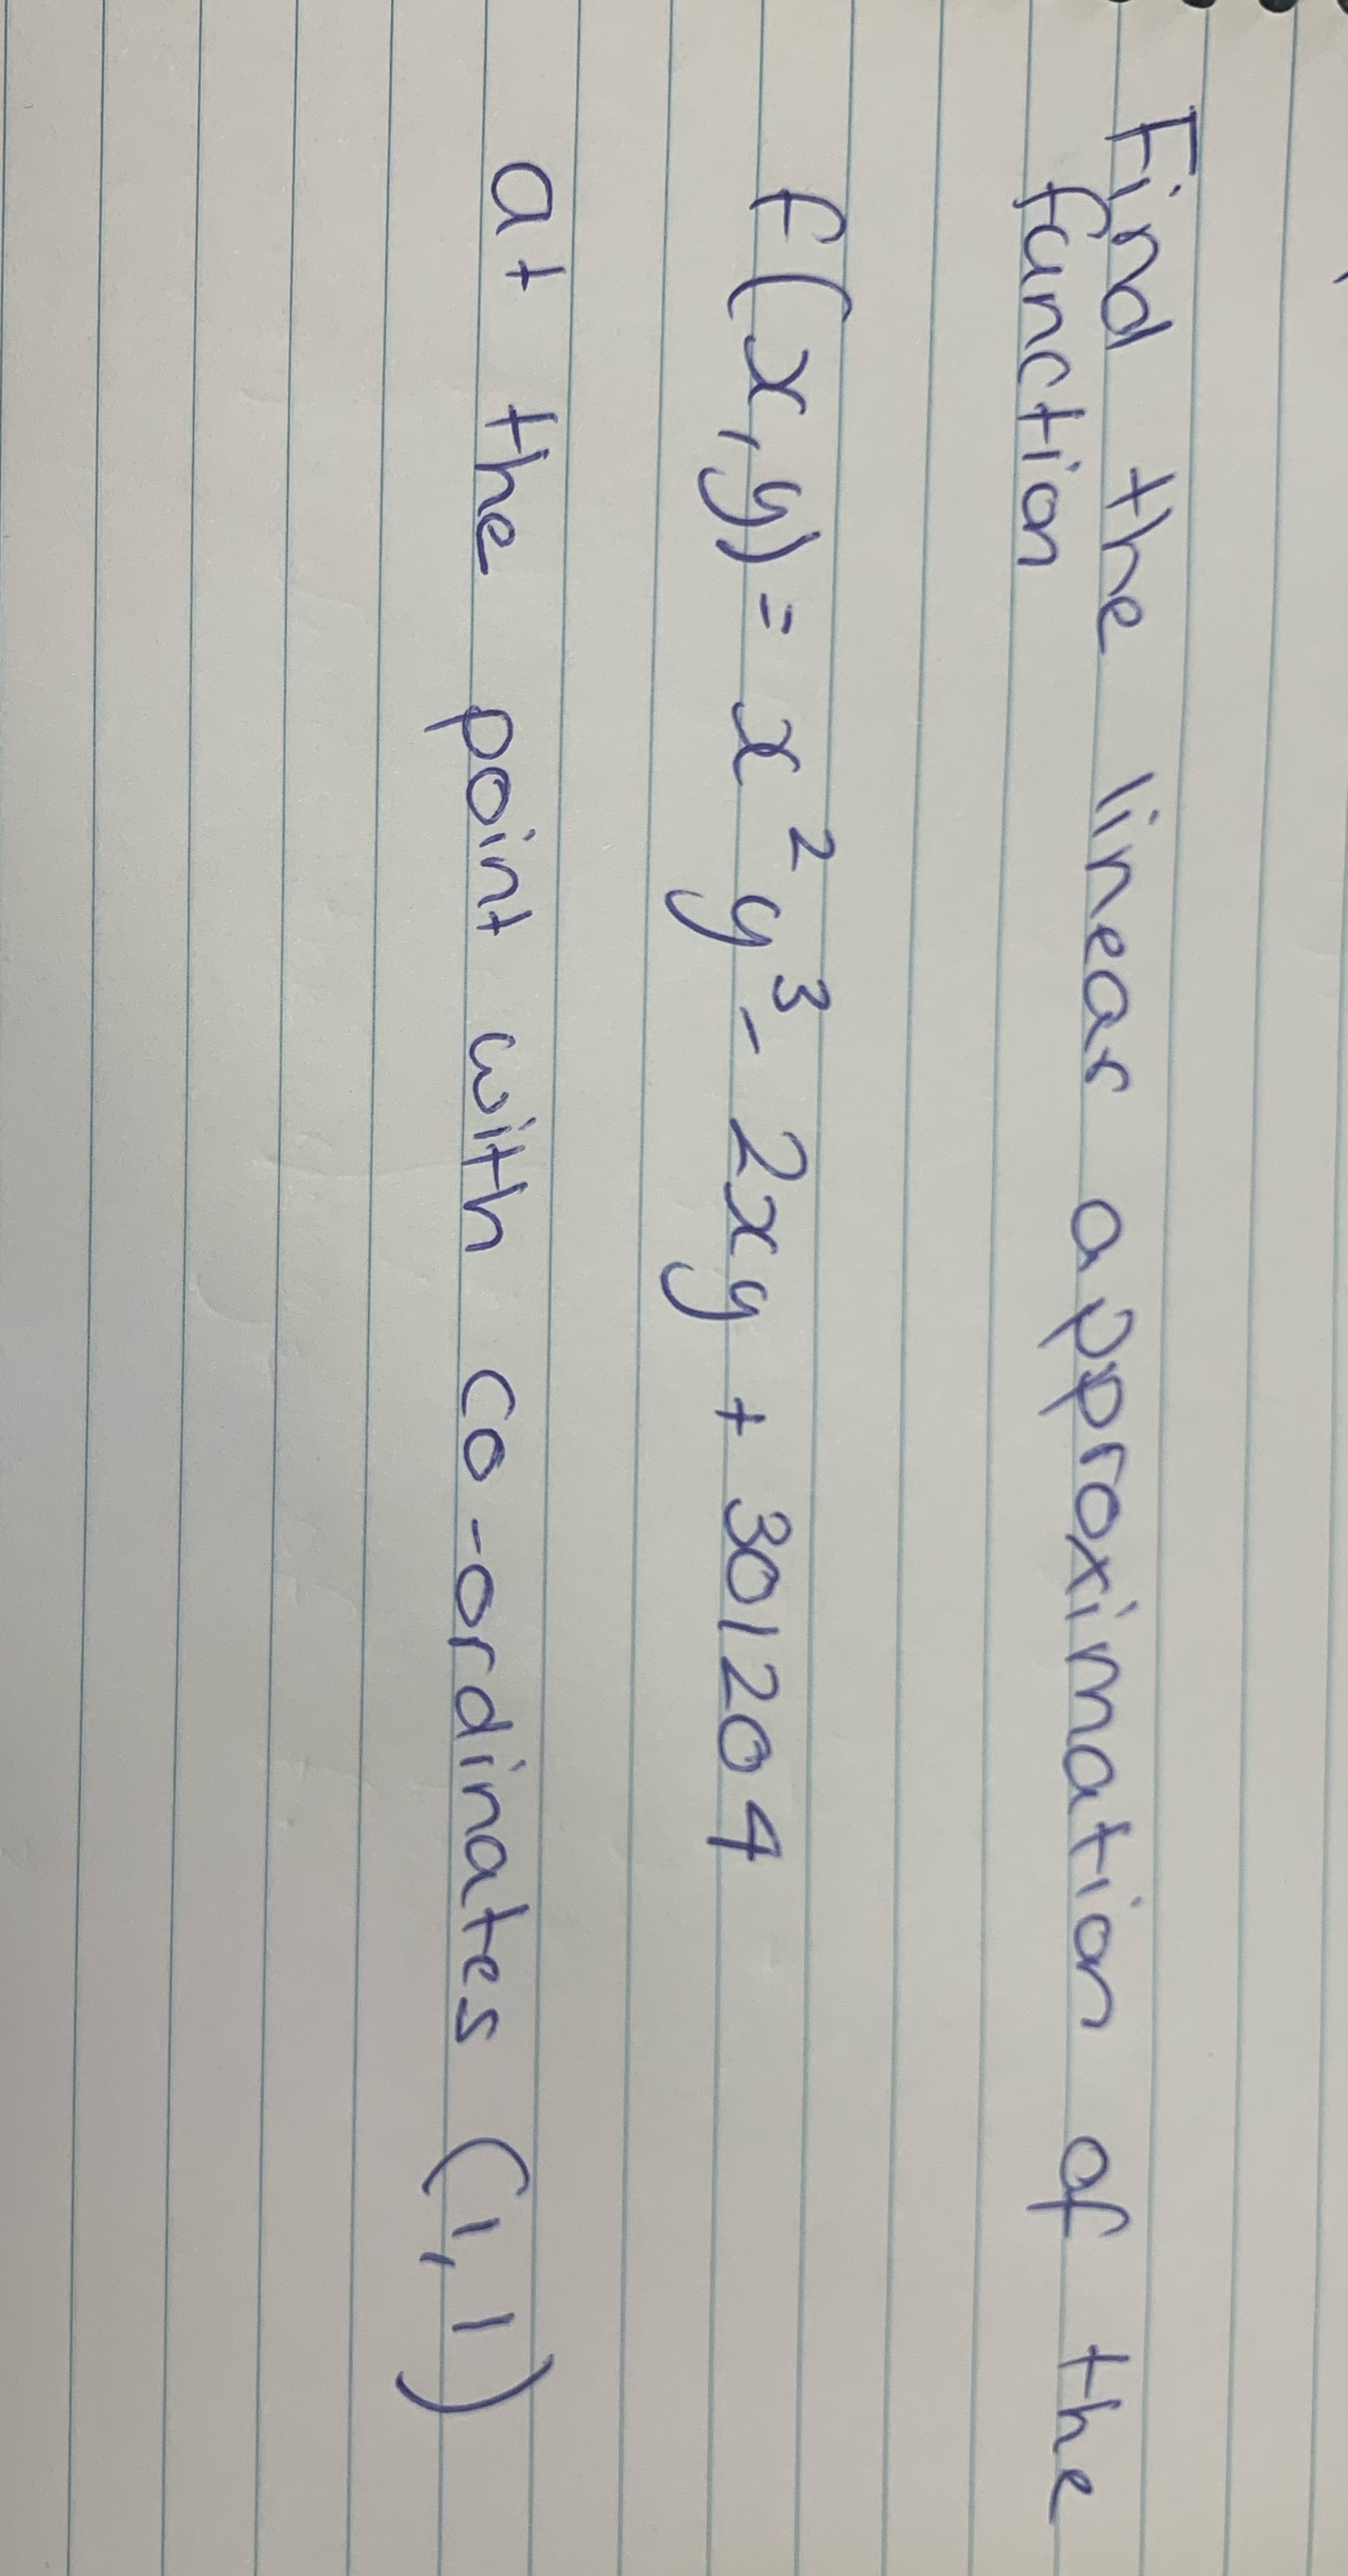 Find the linear approximation of the
function
f(x,y) = x²y³ - 2xy + 301204
at the point with co-ordinates (1,1)